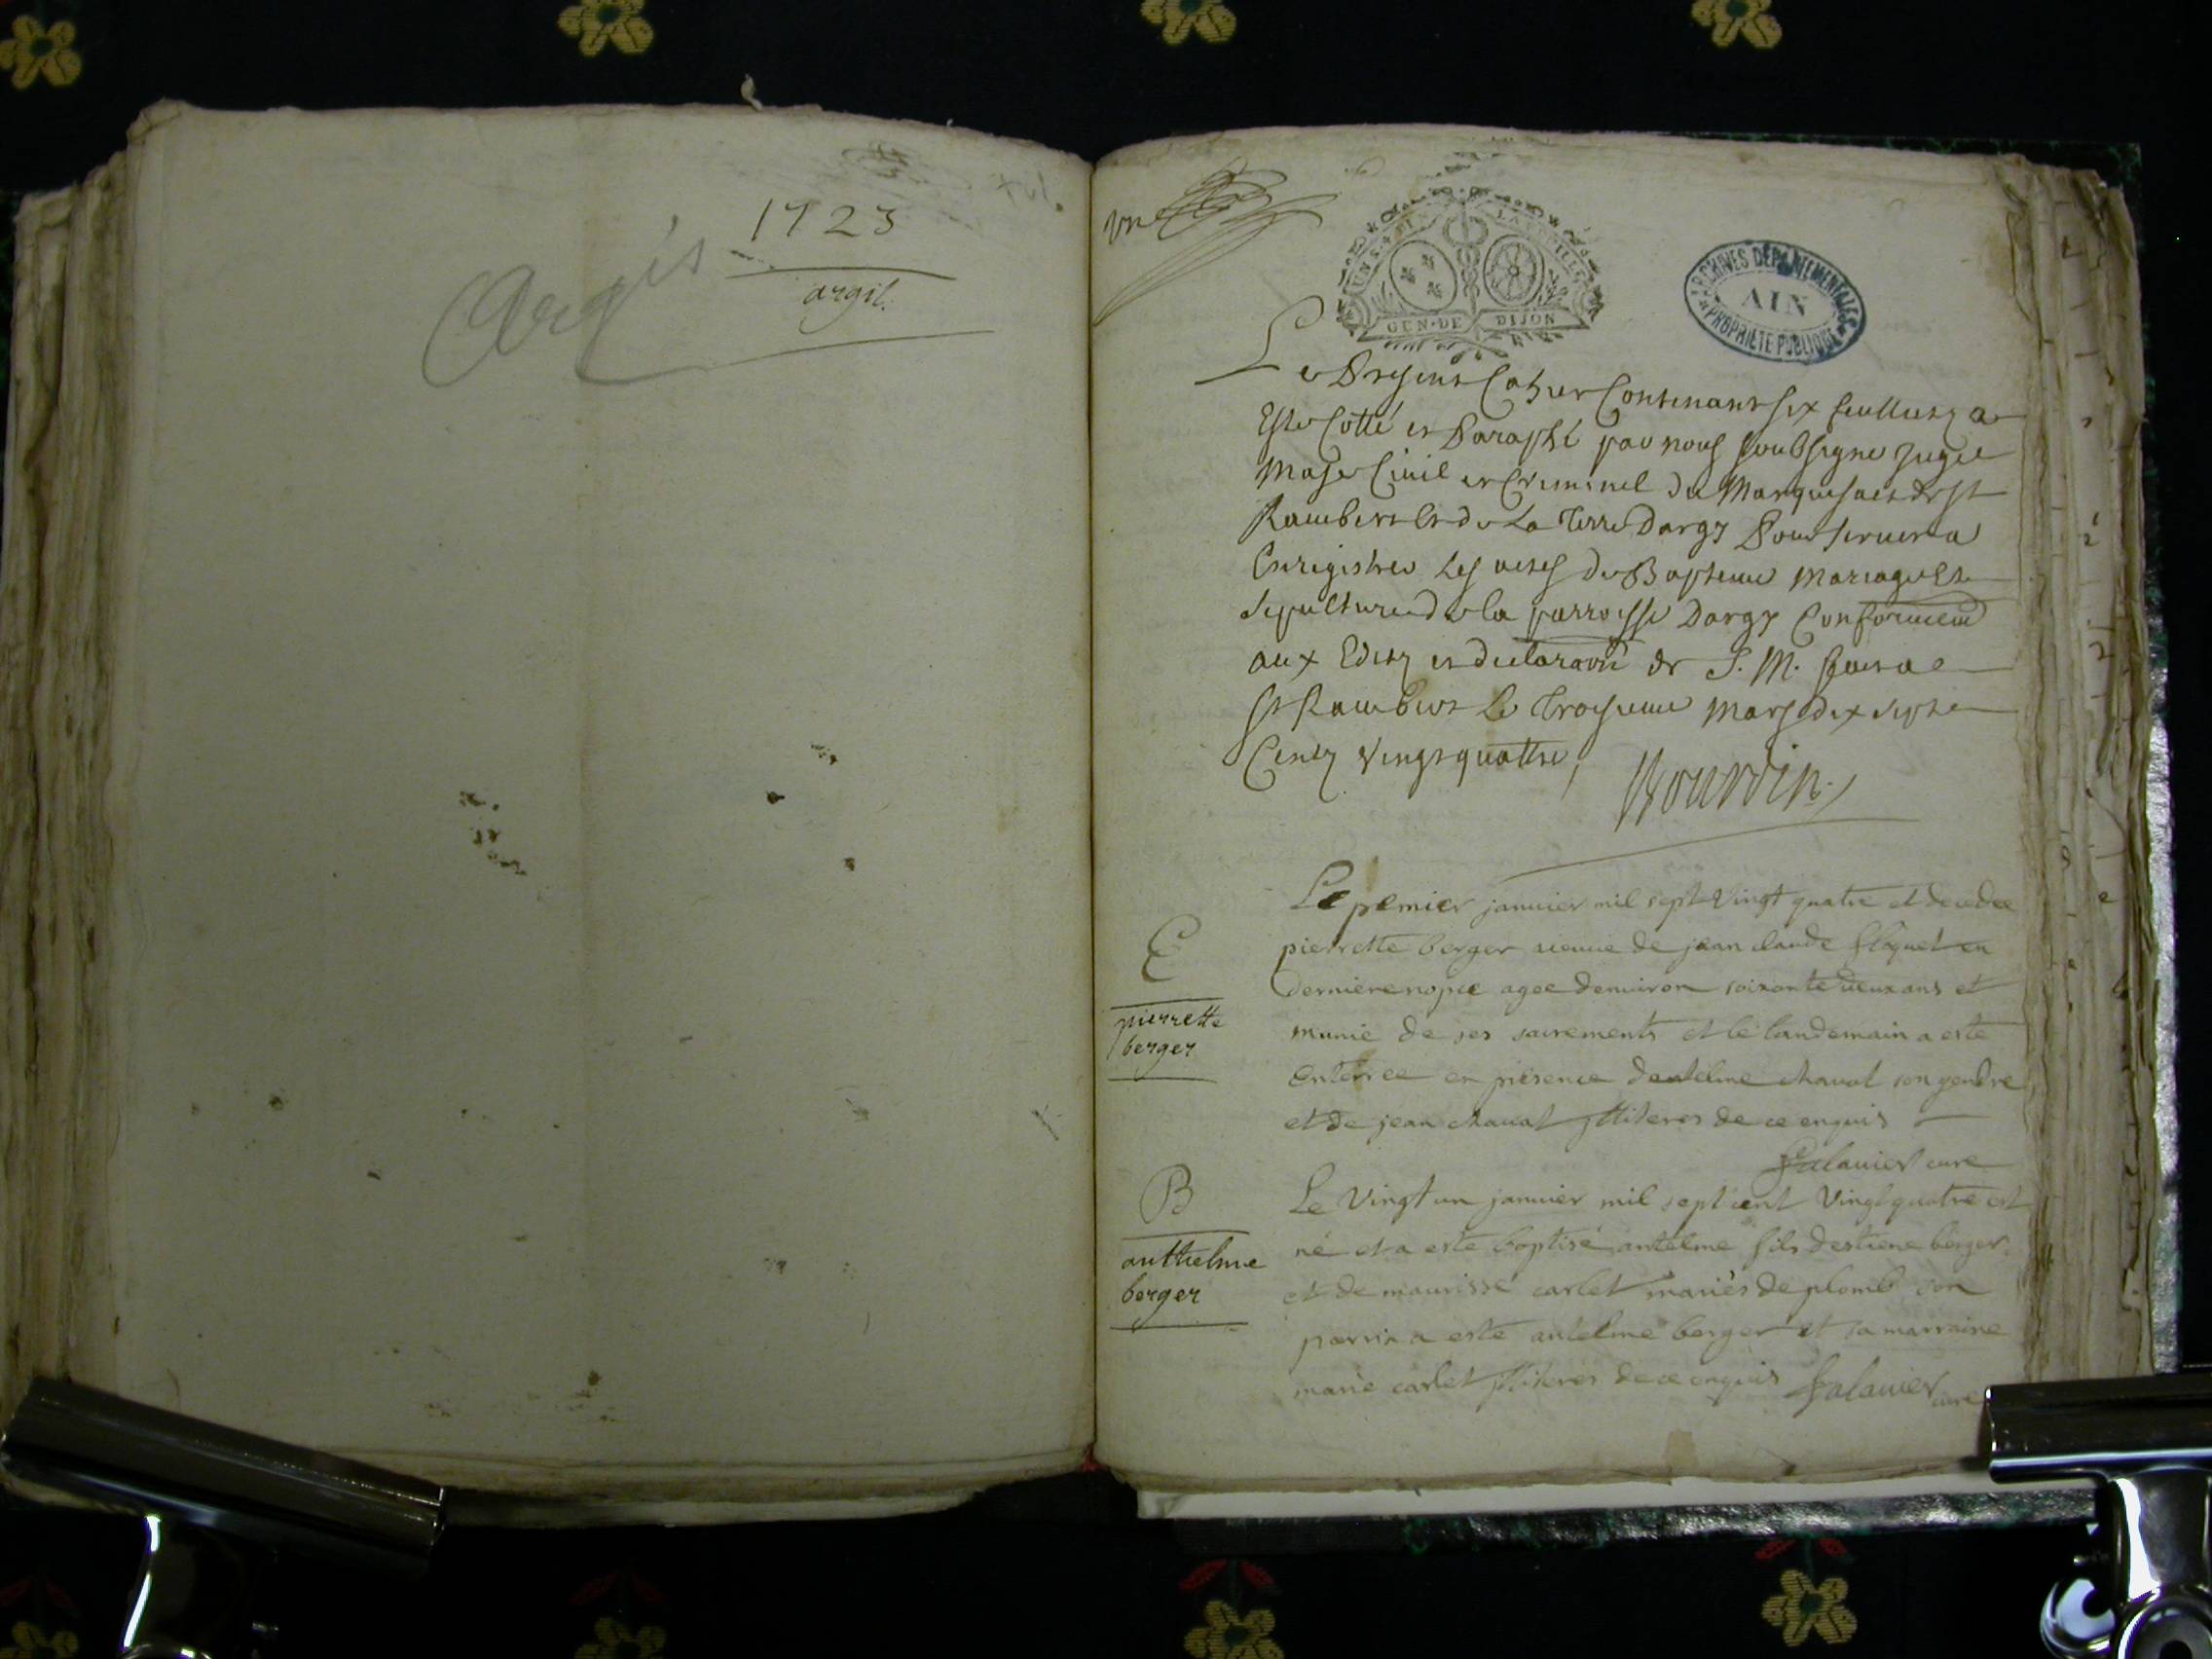 1723
argil.
Argis
un
GEN·DE DIJON
ARCHIVES DEPARTEMENTALES
AIN
PROPRIETE PUBLIQUE
Le Present Cahier Contenant six feulletz a
Este Cotté et Paraphé par nous soubsigne Juge
Maje Civil et Criminel du Marquisat de St
Rambert et de La Terre Dargy Pour servir a
Enregistrer Les actes de Bapteme Mariage et
sepulture de la parroisse Dargy Conformem
aux Edits et declaraon de S. M. fait a
St Rambert Le Troisieme Mars dix sept
Centz Vingt quattre
Bourdin
Le premier janvier mil sept Vingt quatre et decedee
pierrette berger veuve de jean claude en
derniere nopce agee denuiron soixante deux ans et
munie de ses sacrements et le landemain a esté
enterree en presence dantelme chavat son gendre
et de jean chavat illiteres de ce enquis
falavier cure
E
pierrette
berger
Le Vingt un janvier mil sept cent Vingt quatre est
né et a esté baptisé antelme fils destiene berger
et de maurisse carlet mariés de plomb son
parrin a esté antelme berger et sa marraine
marie carlet illiteres de ce enquis falavier cure
B
anthelme
berger